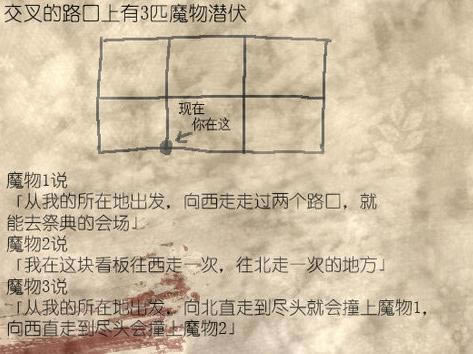 交叉的路口上有3匹魔物潜伏
现在
你在这
魔物1说
「从我的所在地出发，向西走走过两个路口，就
能去祭典的会场」
魔物2说
「我在这块看板往西走一次，往北走一次的地方」
魔物3说
「从我的所在地出发，向北直走到尽头就会撞上魔物1，
向西直走到尽头会撞上魔物2」